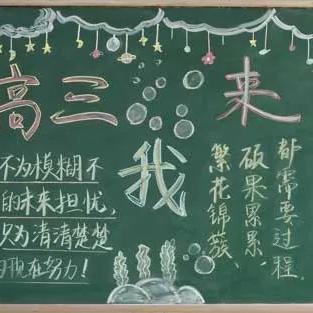 高三我来
不为模糊不
的未来担忧,
只为清清楚楚
的现在努力!
繁花锦簇、
硕果累累、
都需要过程